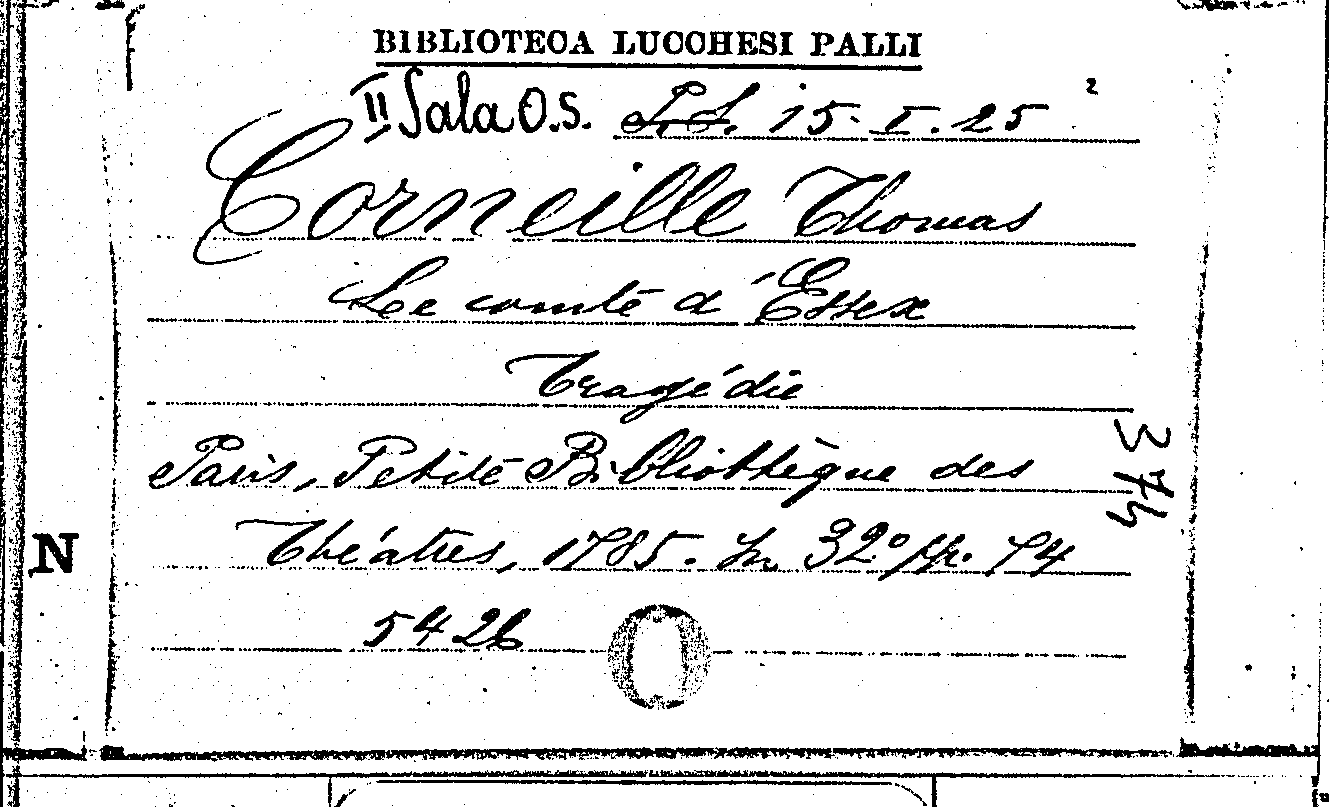 BIBLIOTECA LUCCHESI PALLI
II Sala O.S. L.L. 15. I. 25 2
Corneille Thomas
Le comte d'Essex
Tragédie
Paris, Petite Bibliothèque des
Théatres, 1785. In 32º pp. 74
5426
374
N